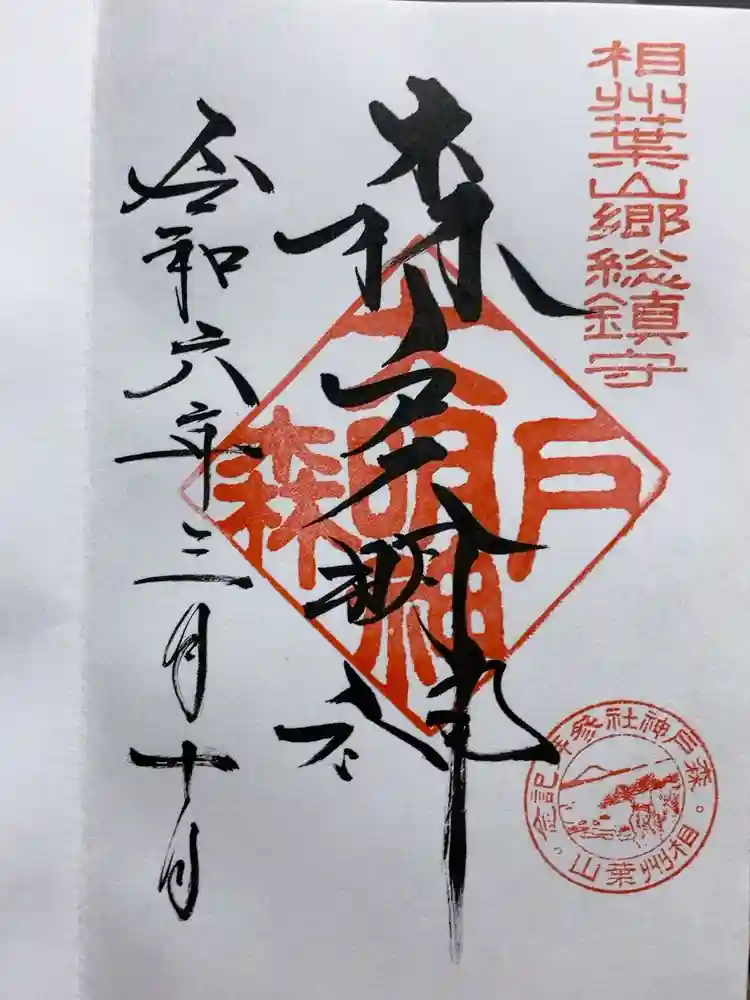 相州葉山郷総鎮守
森戸大明神
令和六年三月十日
森戸
大明神
森戸神社参拝記念
相州葉山